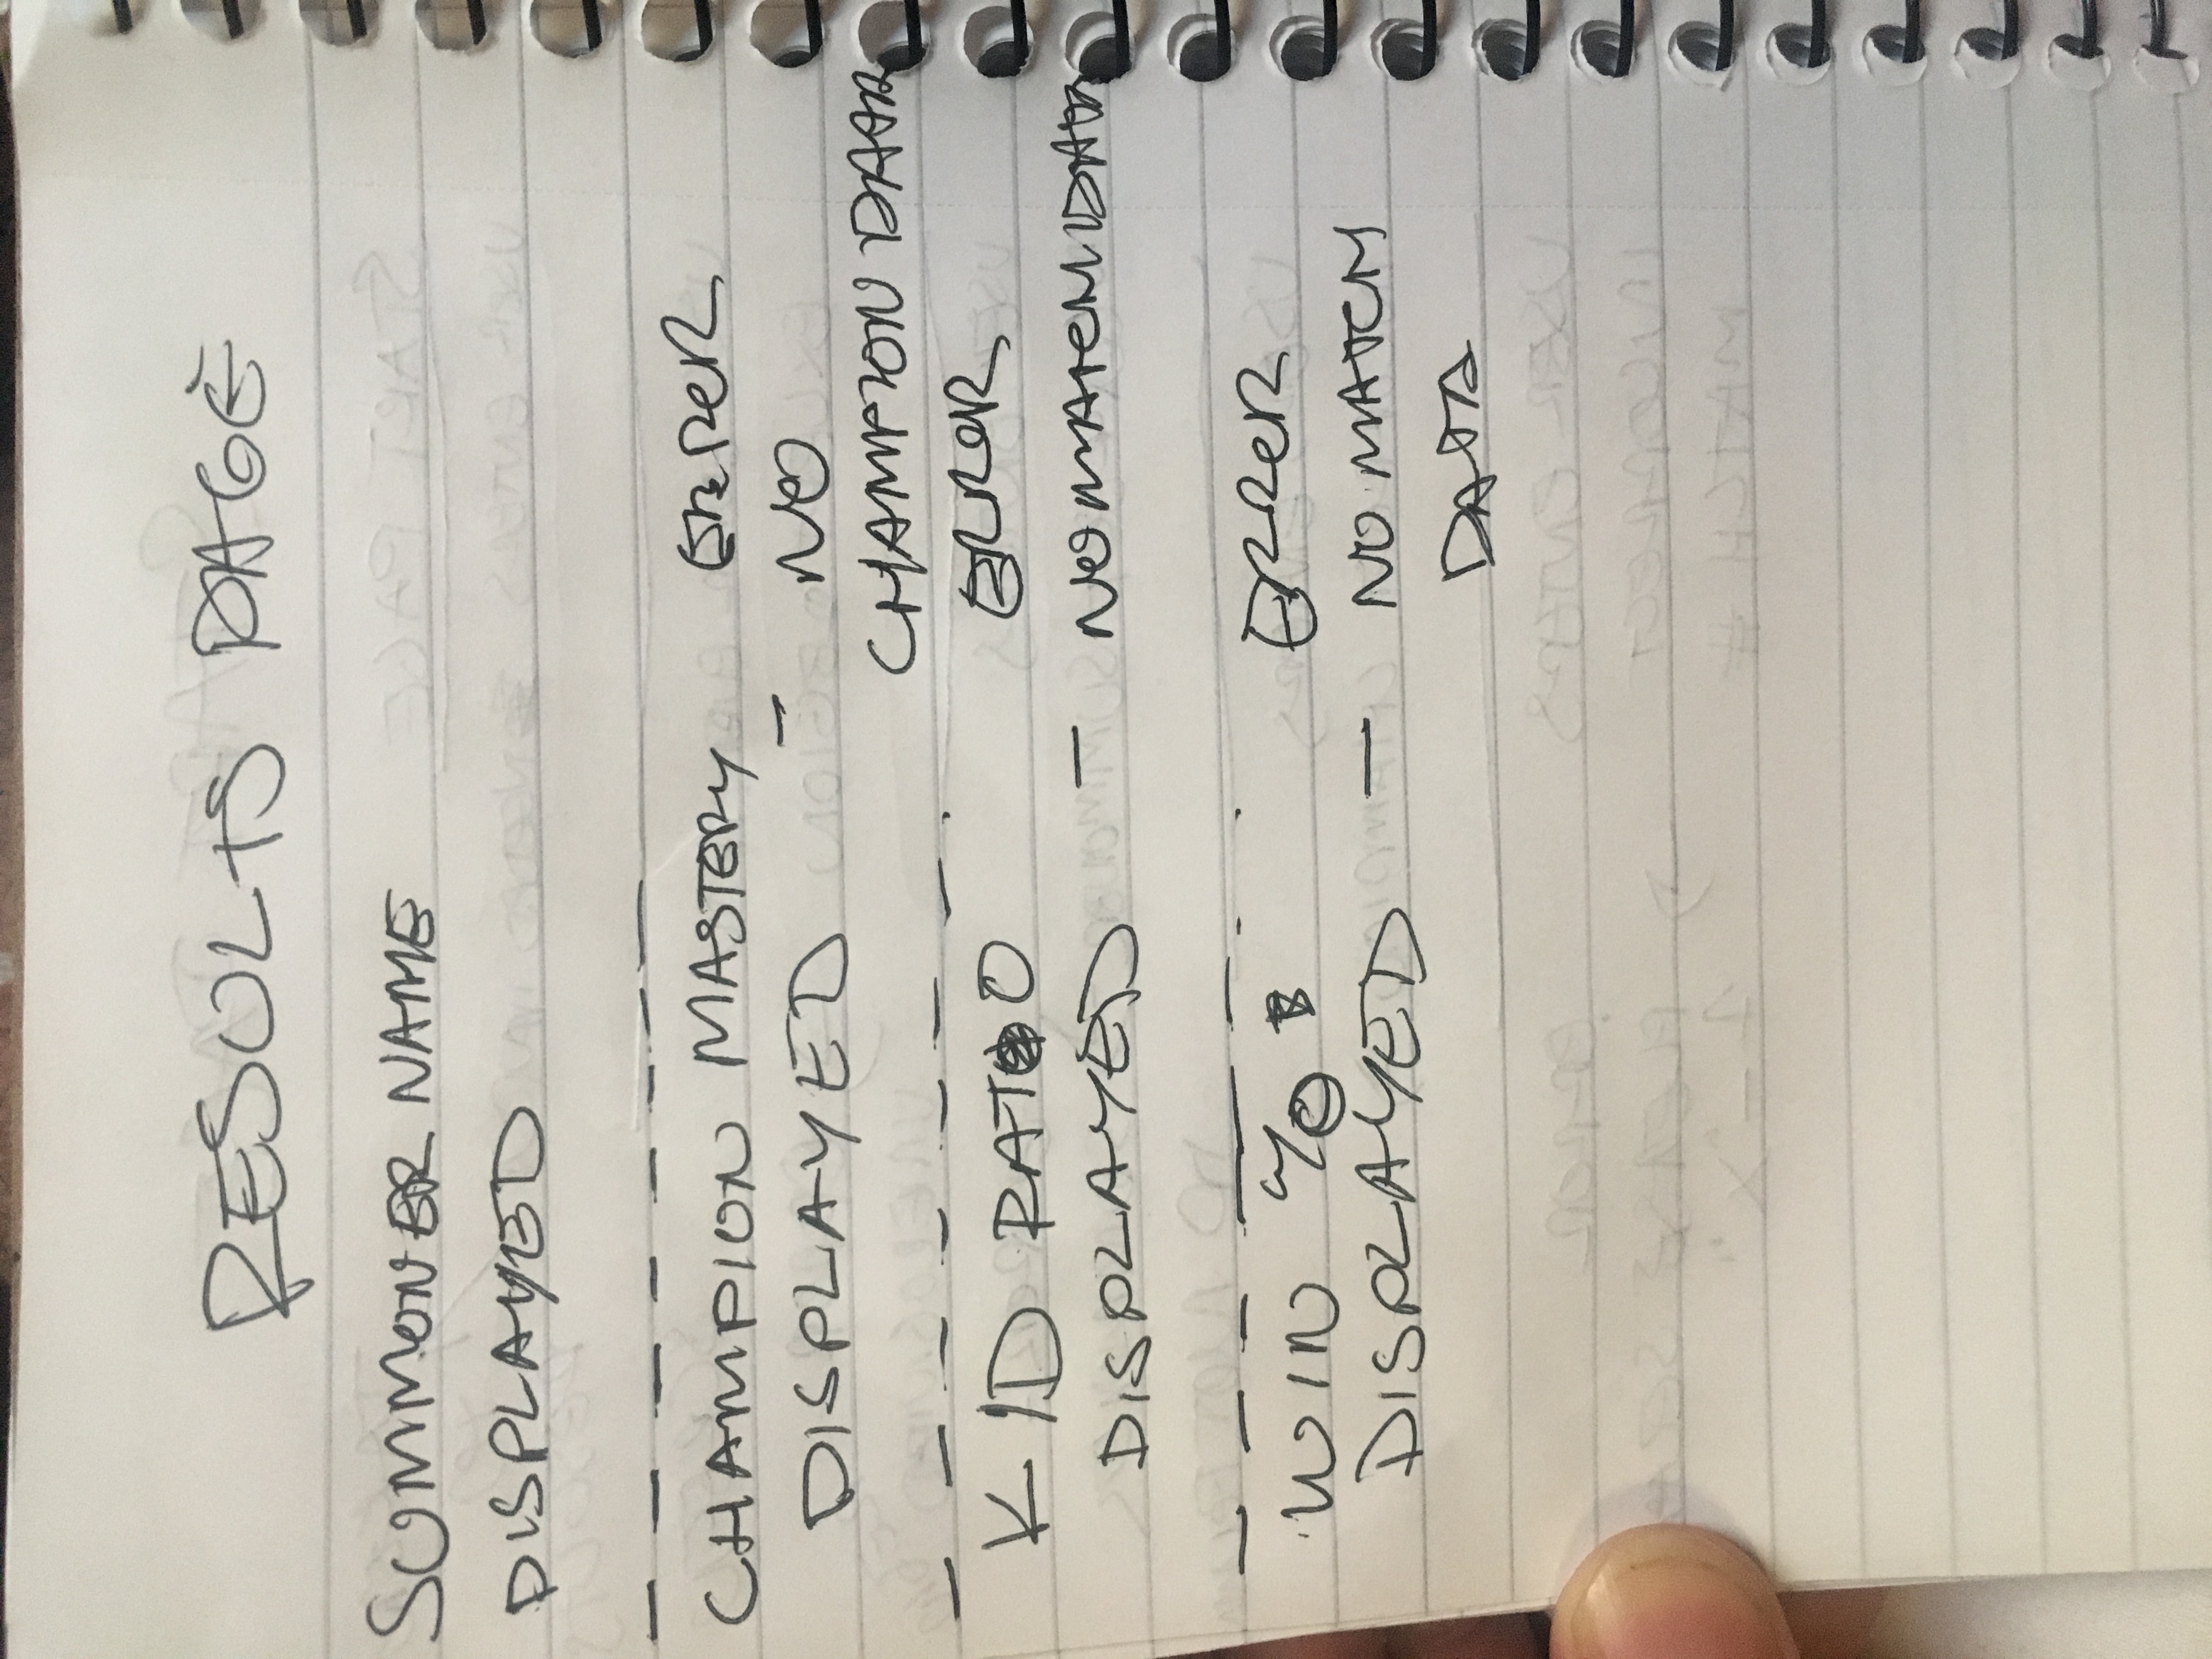 RESULTS PAGE
SUMMONER NAME
DISPLAYED
CHAMPION MASTERY
DISPLAYED -
ERROR
NO
CHAMPION DATA
K/D RATIO
DISPLAYED -
ERROR
NO MATCH DATA
WIN %
DISPLAYED -
ERROR
NO MATCH
DATA